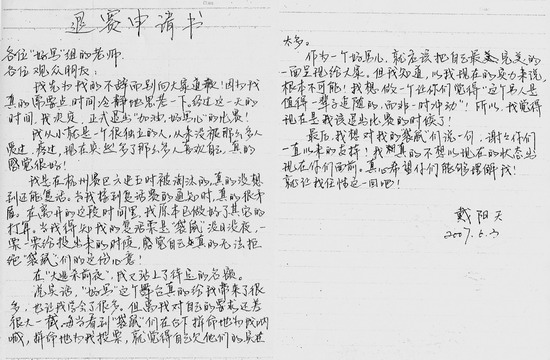 退赛申请书
各位"好男"组的老师,
各位观众朋友:
我先为我的不辞而别向大家道歉!因为我
真的需要点时间冷静地思考一下。经过这一天的
时间,我决定,正式退出"加油,好男儿"的比赛!
我从小就是一个很独立的人,从来没被那么多人
爱过,疼过,现在突然多了那么多人喜欢自己,真的
感觉很好!
我是在杭州赛区六进五时被淘汰的,真的没想
到还能复活。当我接到复活赛的通知时,真的很矛
盾。在离开的这段时间里,我原本已做好了其它的
打算。当我得知我的复活票是"袋鼠"没日没夜,一
票一票给投出来的时候,感觉自己是真的无法拒
绝"袋鼠"们的这份心意!
在"大进不前夜",我又站上了待定的名额。
说实话,"好男"这个舞台真的给我带来了很
多,也让我学会了很多。但离我对自己的要求还差
很大一截,每当看到"袋鼠"们在台下拼命地为我呐
喊,拼命地为我投票,就觉得自己欠他们的真是
太多。
作为一个好男儿,就应该把自己最完美的
一面呈现给大家。但我知道,以我现在的实力来说,
根本不可能!我想做一个让你们觉得"这个男人是
值得一辈子追随的,而非一时冲动"!所以,我觉得
现在是我该退出比赛的时候了!
最后,我想对我的袋鼠们说一句,谢谢你们
一直以来的支持!我想真的不想以现在的状态出
现在你们面前。真心希望你们能够理解我!
就让我任性这一回吧!
戴阳天
2007.6.3